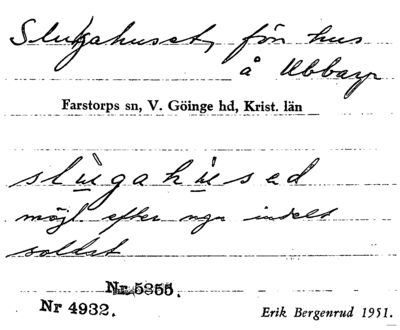 Slugahuset, förr hus
å Ubbarp
Farstorps sn, V. Göinge hd, Krist. län
slùgahùsed
möjl. efter ngn indelt
soldat
Nr 5355.
Nr 4932.
Erik Bergenrud 1951.